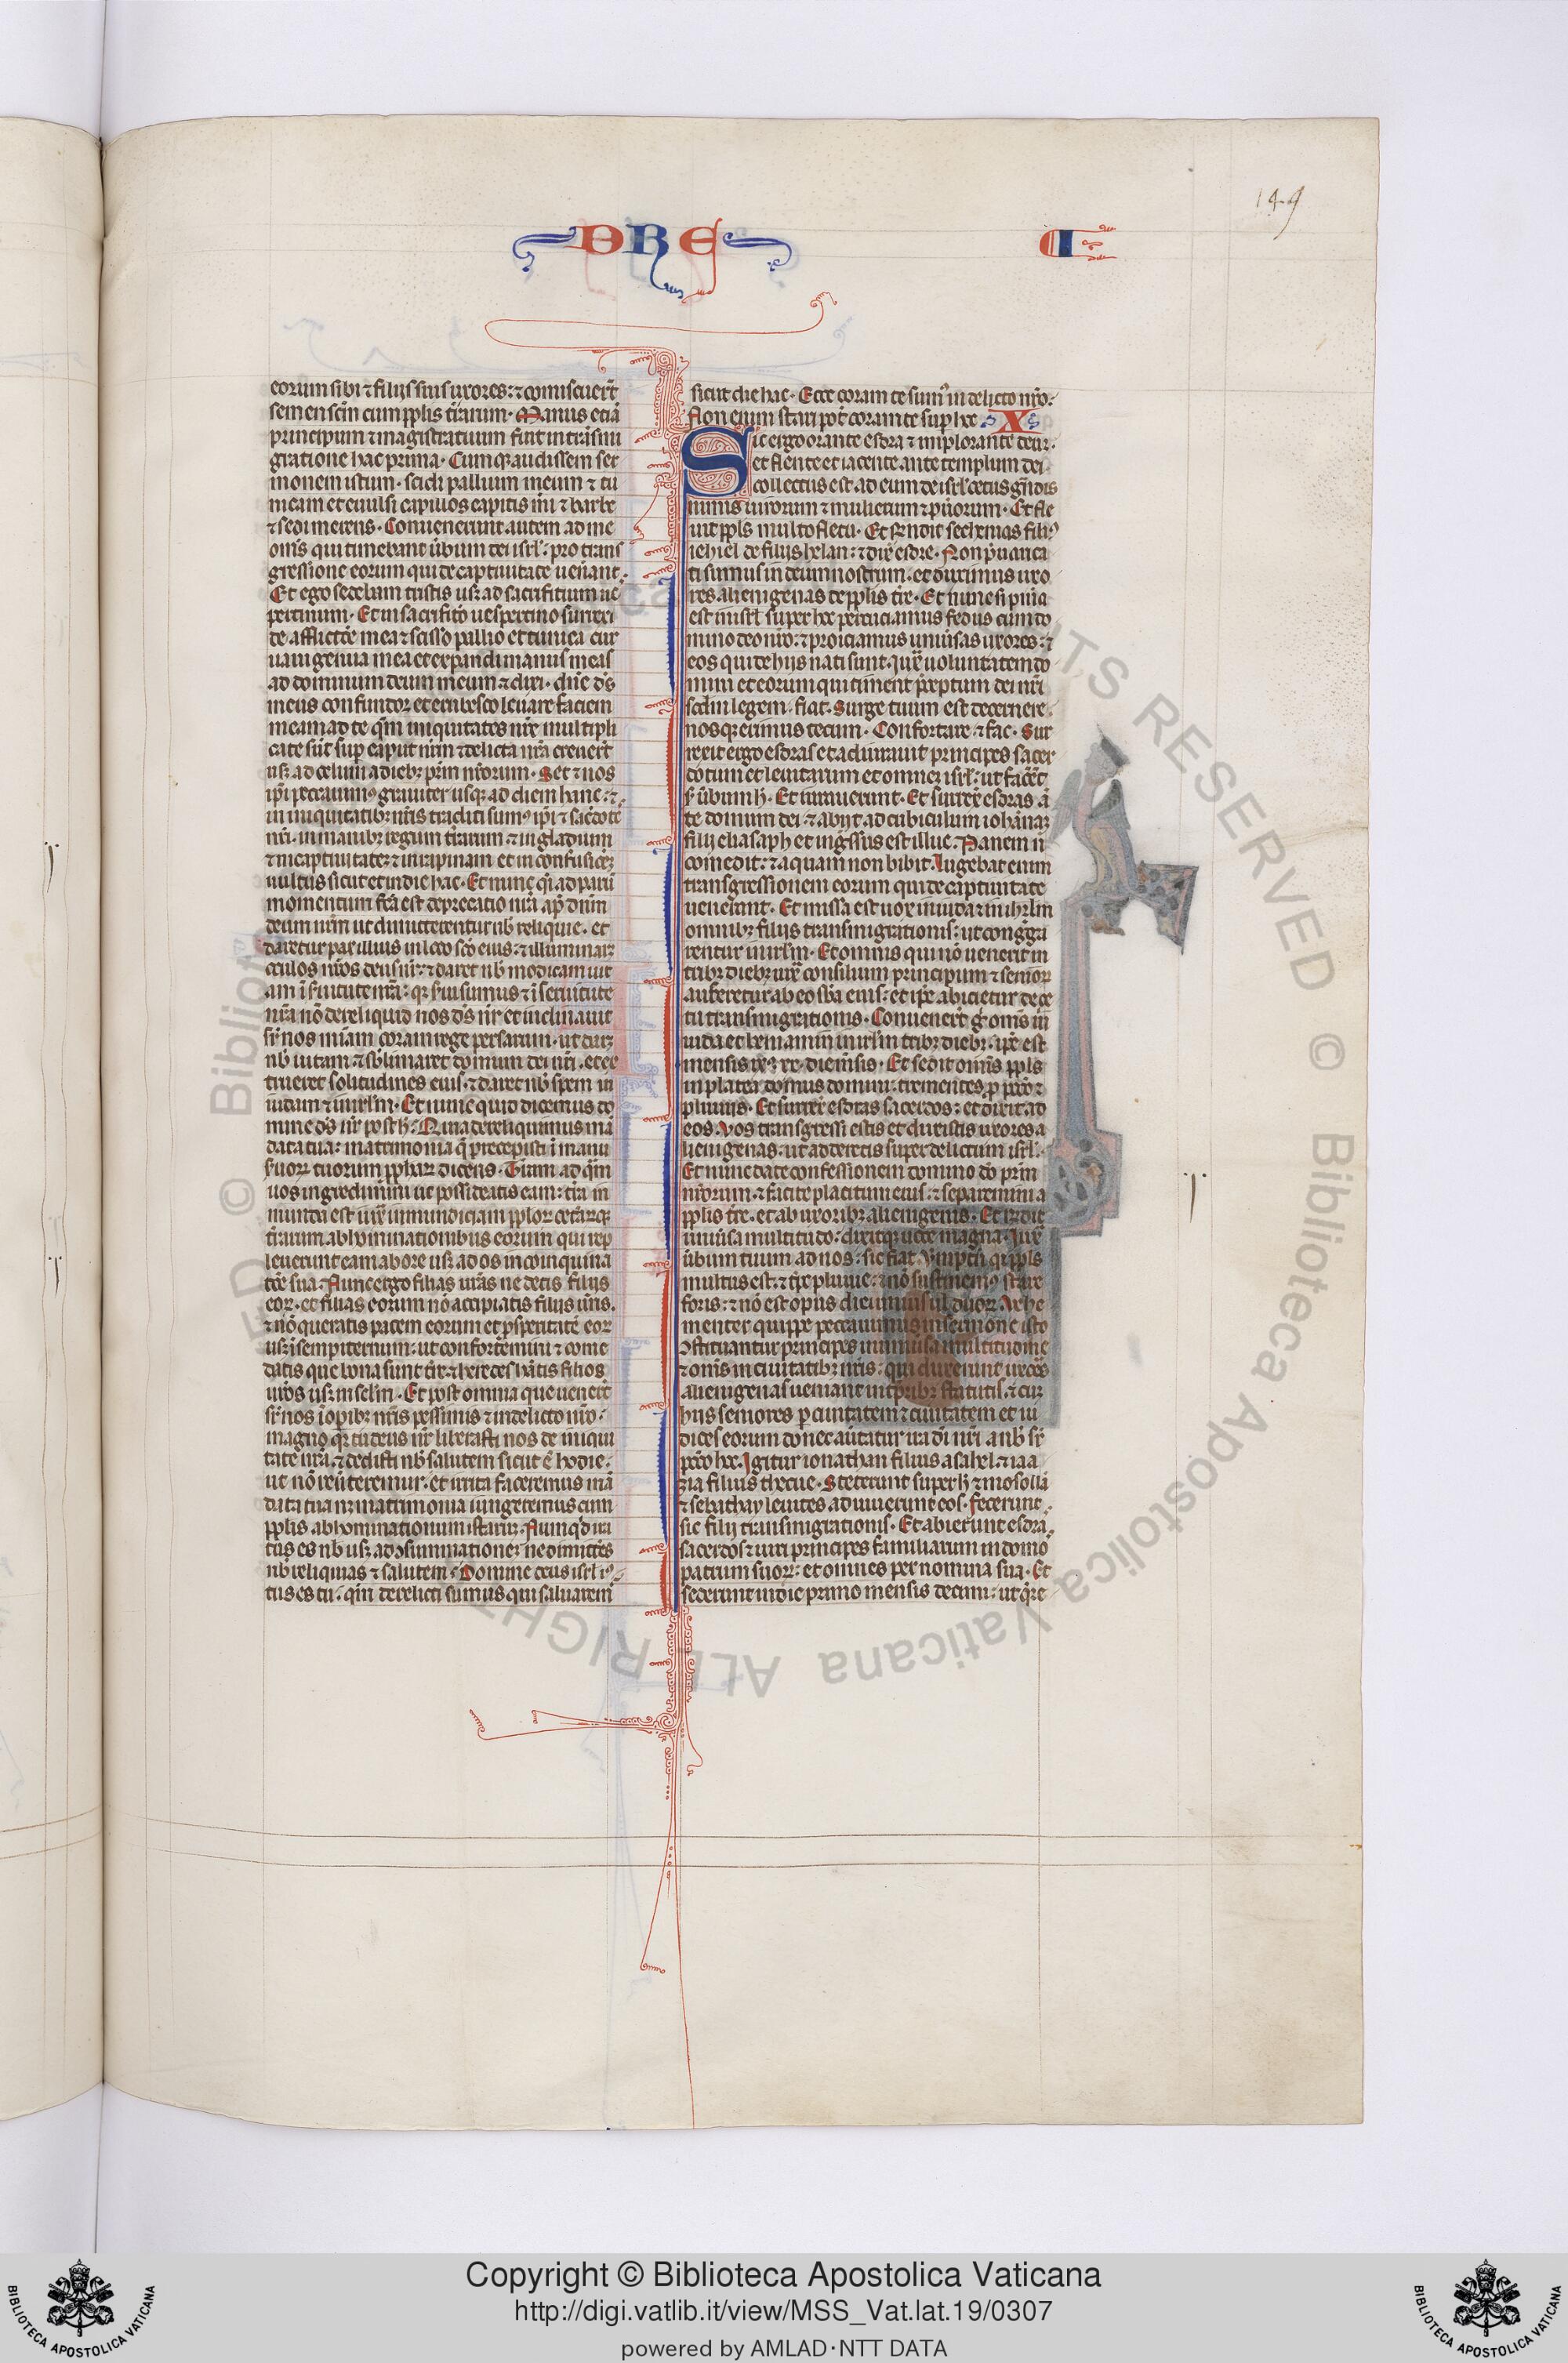 149
DRE
I
eorum sibi ⁊ filijs suis uxores: ⁊ comiscuert̃
semen scm̃ cum pp̃lis tr̃arum. Manus etiã
principum ⁊ magistratuum fuit in trãsmi
gratione hac prima. Cumq; audissem ser
monem istum. scidi pallium meum ⁊ tu
meam et euulsi capillos capitis mi ⁊ barbe
⁊ sedi merens. Conuenerunt autem ad me
om̃s qui timebant ũbum dei isrl̃: pro trans
gressione eorum qui de captiuitate uen̾ant.
Et ego sedebam tristis usq; ad sacrifitium ue
spertinum. Et in sacrifitõ uespertino surrexi
de afflictõe mea ⁊ scisso pallio et tunica cur
uaui genua mea et expandi manus meas
ad dominum deum meum ⁊ dixi. dñe ds̃
meus confundor et erubesco leuare faciem
meam ad te qm̃ iniquitates nr̃e multipli
cate sũt sup caput nr̃m ⁊ delicta nr̃a creuer̃t
usq; ad celum a dieb; pr̃m nr̃orum. Set ⁊ nos
ip̃i peccauimꝰ grauiter usq; ad diem hanc: ⁊
in iniquitatib; nr̃is traditi sumꝰ ip̃i ⁊ sacerdote
nr̃i. in manib; regum tr̃arum ⁊ in gladium
⁊ in captiuitatez ⁊ in rapinam et in confusionez
uultus sicut et in die hac. Et nunc q̃i ad parũ
momentum fc̃a est deprecatio nr̃a ap̃ dñm
deum nr̃m ut dimitterentur nb̃ reliquie. et
daretur pax illius in loco sc̃o eius: ⁊ illuminarz
oculos nr̃os deus nr̃: ⁊ daret nb̃ modicam uit
am ĩ s̾uitute nr̃a: q; s̾ui sumus ⁊ ĩ seruitute
nr̃a nõ dereliquid nos ds̃ nr̃ et inclinauit
sr̃ nos mĩam coram rege persarum. ut darz
nb̃ uitam: ⁊ sb̾limaret domum dei nr̃i. et ex
trueret solitudines eius. ⁊ daret nb̃ spem in
iudam ⁊ in irl̃m. Et nunc quid dicemus do
mine ds̃ nr̃ post h̾. Quia dereliquimus mã
data tua: matrimonia q̃ precepisti ĩ manu
s̾uorꝝ tuorum pp̃harꝝ dicens. Terram ad q̃m
uos ingredimini ut possideatis eam: tr̃a in
munda est iux̃ immundiciam pp̃lorꝝ ceterarꝝq;
tr̃arum. abhominationibus eorum qui rep
leuerunt eam ab ore usq; ad os in coinquina
tõe sua. Nunc ergo filias ur̃as ne detis filijs
eorꝝ. et filias eorum nõ accipiatis filijs ur̃is.
⁊ nõ queratis pacem eorum et ꝓsperitatẽ eorꝝ
usq; ĩ sempiternum: ut confortemini ⁊ come
datis que bona sunt tr̃e: ⁊ heredes h̾atis filios
ur̃os usq; in sel̃m. Et post omnia que uener̃t
sr̃ nos ĩ opib; nr̃is pessimis ⁊ in delicto nr̃o.
magno. q̃r tu deus nr̃ liberasti nos de iniqui
tate nr̃a. ⁊ dedisti nb̃ salutem sicut ẽ hodie.
ut nõ reũteremur. et irrita faceremus mã
data tua nz matrimonia iungeremus cum
pp̃lis abhominationum istarꝝ. Nunqd ira
tus es nb̃ usq; ad ↄsummationez ne dimittẽs
nb̃ reliquias ⁊ salutem. Domine deus isrl̃ iꝰ
tus es tu. qm̃ derelicti sumus qui saluarem
sicut die hac. Ecce coram te sumꝰ in delicto nr̃o.
Non enim stari pot̃ coram te sup̾ hoc. X
Sic ergo orante esdra ⁊ implorante eum.
et flente et iacente ante templum dei
collectus est ad eum de isrl̃ cetus gñdis
nimis uirorum ⁊ mulierum ⁊ pũorum. Et fle
uit pp̃ls multo fletu. Et rñdit sechenias filiꝰ
iehiel de filijs helan: ⁊ dix̃ esdre. Non p̃uarica
ti sumus in deum nostrum. et duximus uxo
res. alienigenas de pp̃lis tr̃e. Et nunc si pn̾ia
est in isrl̃ super hoc percuciamus fedus cum do
mino deo nr̃o: ⁊ proiciamus uniũsas uxores: ⁊
eos qui de hijs nati sunt. iux̃ uoluntatem do
mini et eorum qui timent p̃ceptum dei nr̃i
scd̃m legem. fiat. Surge tuum est decernere.
nosq; erimus tecum. Confortare ⁊ fac. Sur
rexit ergo esdras et adiurauit principes sacer
dotum et leuitarum et omnez isrl̃: ut facer̃t
s̾ ũbum h̾. Et iurauerunt. Et surrex̃ esdras. ã
te domum dei: ⁊ abijt ad cubiculum iohãnan
filij eliasaph et ing̃ssus est illuc. Panem ñ
comedit: ⁊ aquam non bibit. lugebat enim
transgressionem eorum qui de captiuitate
uenerant. Et missa est uox in iuda ⁊ in ihrl̃m
omnib; filijs transmigrationis: ut congrega
rentur in irl̃m. Et omnis qui nõ uenerit in
trib; dieb; iux̃ consilium principum ⁊ seniorꝝ
auferetur ab eo sb̃a eius: et ip̃e abicietur de ce
tu transmigrationis. Conuener̃t g̃ om̃s uiri
iuda et beniamin in irl̃m trib; dieb;. ip̃e est
mensis ixꝰ xx. die m̃sis. Et sedit om̃is pp̃ls
in platea domus domini: trementes p pcc̃o ⁊
pluuijs. Et surrex̃ esdras sacerdos: et dixit ad
eos. Vos transgressi estis et duxistis uxores a
lienigenas. ut adderetis super delictum isrl̃.
Et nunc date confessionem domino dõ pr̃m
nr̃orum. ⁊ facite placitum eius: ⁊ separemini a
pp̃lis tr̃e. et ab uxorib; alienigenis. Et rñdit
uniũsa multitudo: dixitq; uoce magna. Iux̃
ũbum tuum ad nos: sic fiat. Vmptñ q̃r pp̃ls
multus est. ⁊ tp̃r pluuie: ⁊ nõ sustinemꝰ stare
foris: ⁊ nõ est opus diei unius ul̃ duorꝝ. Vehe
menter quippe peccauimus in sermone isto
ↄstituantur principes in uniũsa multitudine
⁊ om̃s in ciuitatib; nr̃is: qui duxerunt uxores
alienigenas ueniant in tp̃rib; statutis. ⁊ cuz
hijs seniores p ciuitatem ⁊ ciuitatem et iu
dices eorum donec aũtatur ira di nr̃i a nb̃ sr̃
pcc̃o hoc. Igitur ionathan filius asahel ⁊ iaa
zia filius thecue. Steterunt super h̾ ⁊ mosollã
⁊ sebathay leuites. adiuuerunt eos. fecerunt
sic filij transmigrationis. Et abierunt esdra.
sacerdos ⁊ uiri principes familiarum in domo
patrum suorꝝ: et omnes per nomina sua. Et
sederunt in die primo mensis decimi: ut q̃re
Copyright © Biblioteca Apostolica Vaticana
http://digi.vatlib.it/view/MSS_Vat.lat.19/0307
powered by AMLAD·NTT DATA
BIBLIOTECA APOSTOLICA VATICANA
BIBLIOTECA APOSTOLICA VATICANA